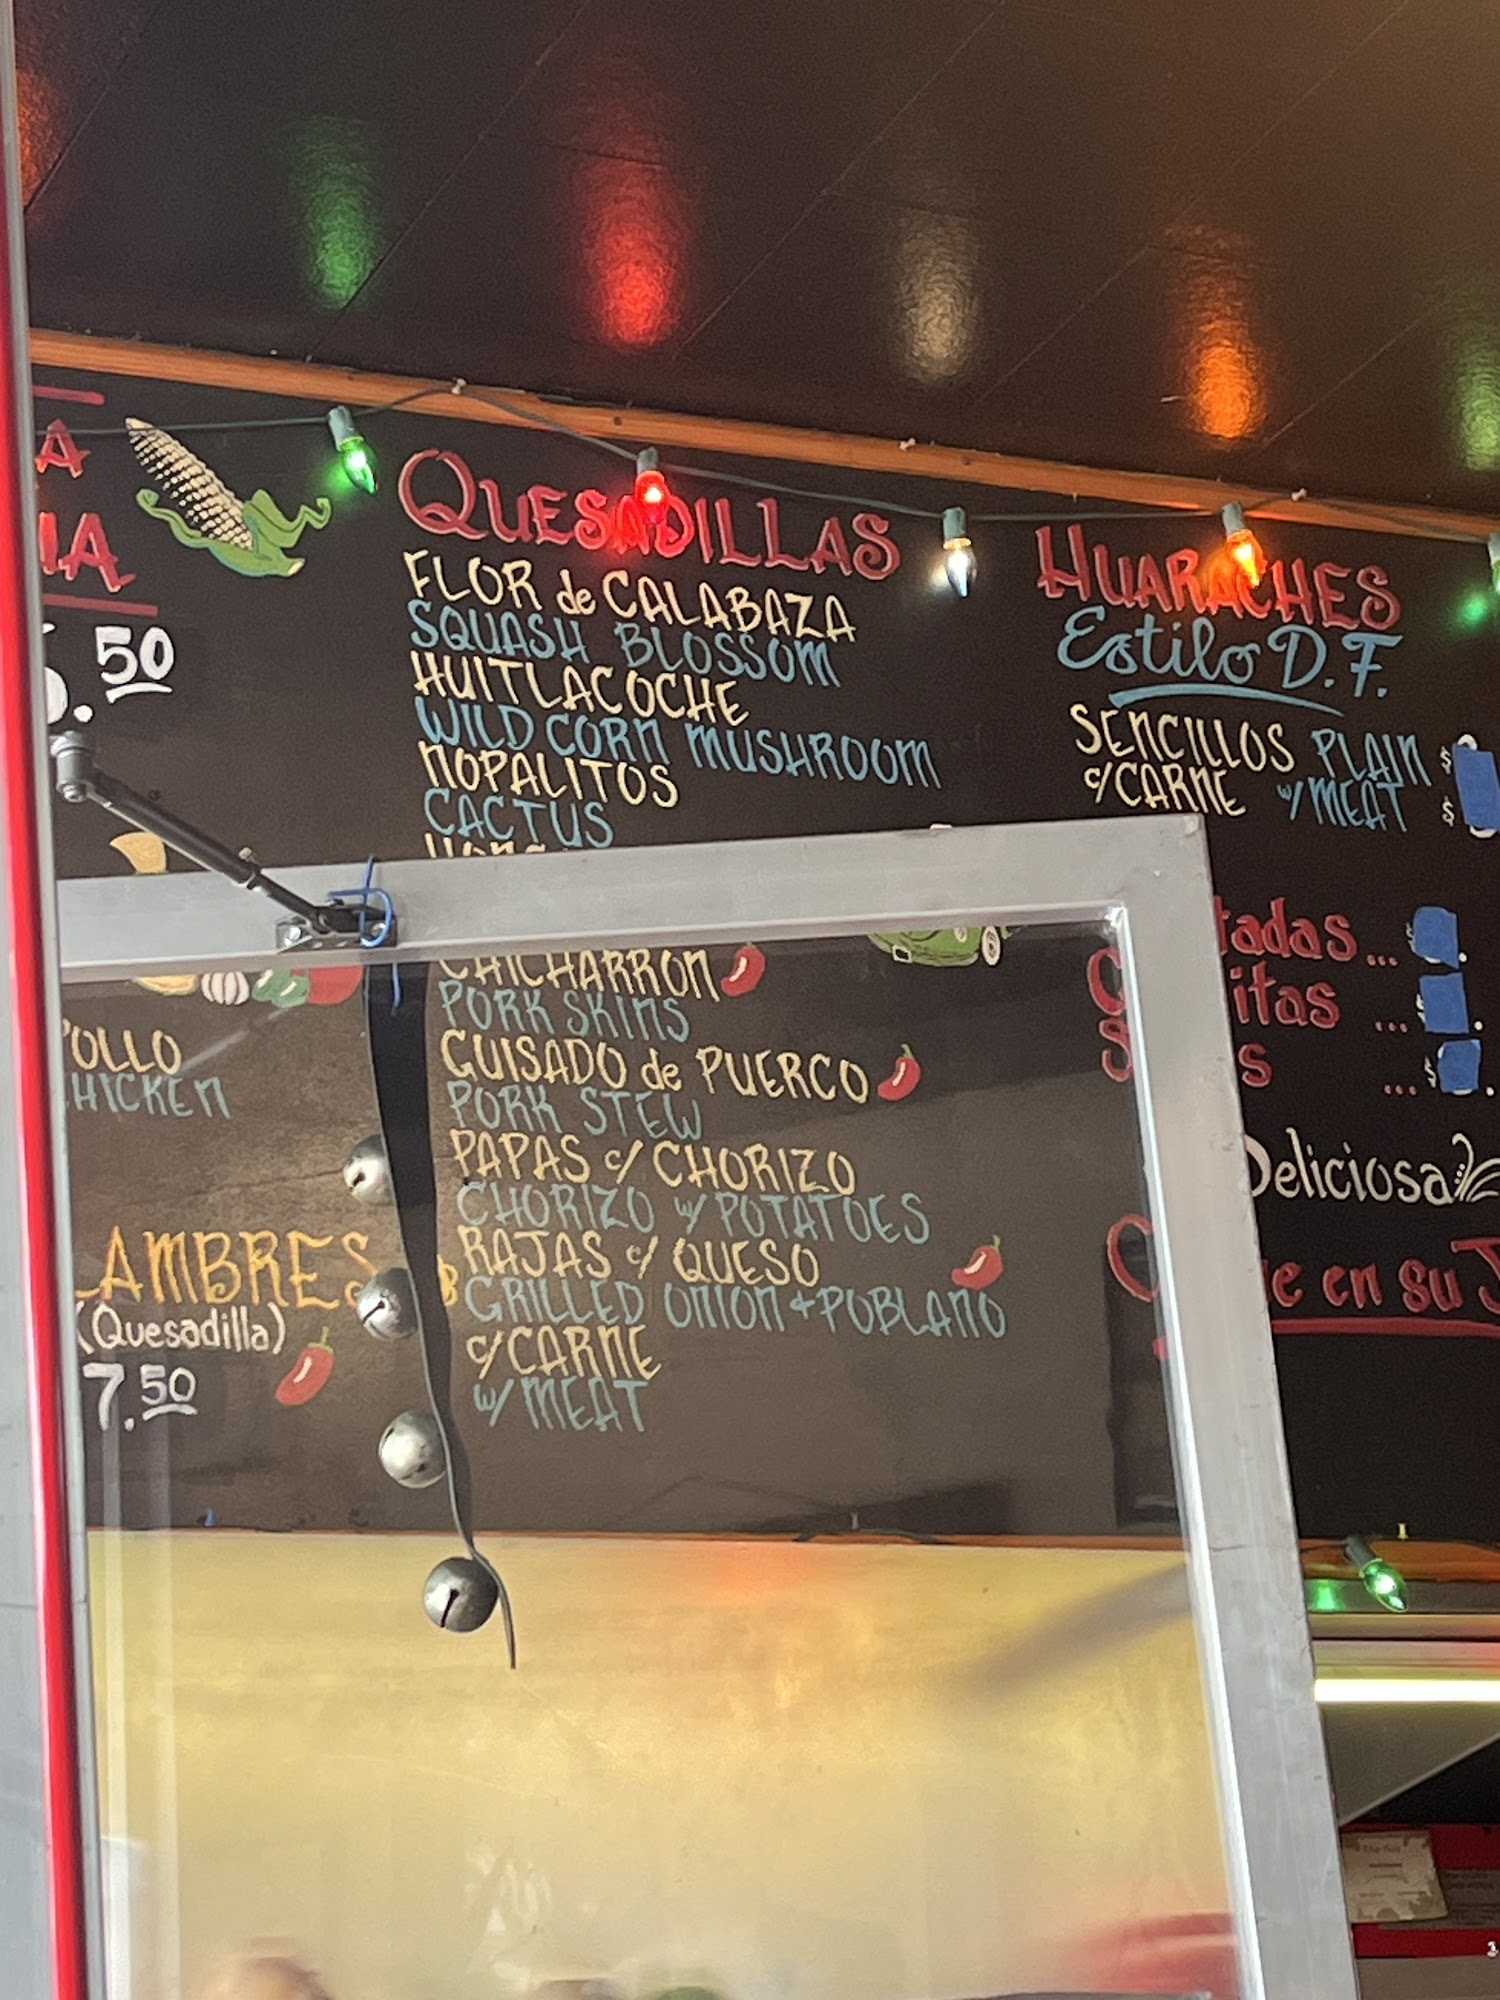 .50
POLLO
CHICKEN
(Quesadilla)
7.50
QUESADILLAS
FLOR de CALABAZA
SQUASH BLOSSOM
HUITLACOCHE
WILD CORN MUSHROOM
NOPALITOS
CACTUS
CHICHARRON
PORK SKINS
GUISADO de PUERCO
PORK STEW
PAPAS c/ CHORIZO
CHORIZO w/ POTATOES
RAJAS c/ QUESO
GRILLED ONION + POBLANO
c/CARNE
w/ MEAT
HUARACHES
Estilo D.F.
SENCILLOS PLAIN $
c/CARNE w/ MEAT $
tadas... $
itas ... $
s ... $
Deliciosa
en su